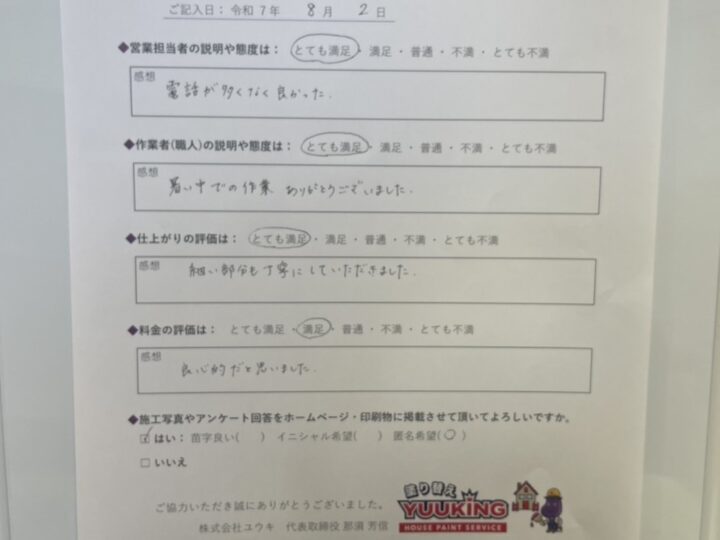 ご記入日：令和7年 8月 2日
◆営業担当者の説明や態度は： とても満足 ・ 満足 ・ 普通 ・ 不満 ・ とても不満
感想
電話が多くなく良かった.
◆作業者(職人)の説明や態度は： とても満足 ・ 満足 ・ 普通 ・ 不満 ・ とても不満
感想
暑い中での作業 ありがとうございました.
◆仕上がりの評価は： とても満足 ・ 満足 ・ 普通 ・ 不満 ・ とても不満
感想
細い部分も丁寧にしていただきました.
◆料金の評価は： とても満足 ・ 満足 ・ 普通 ・ 不満 ・ とても不満
感想
良心的だと思いました.
◆施工写真やアンケート回答をホームページ・印刷物に掲載させて頂いてよろしいですか。
☑ はい： 苗字良い( ) イニシャル希望( ) 匿名希望(○)
□ いいえ
ご協力いただき誠にありがとうございました。
株式会社ユウキ 代表取締役 那須 芳信
塗り替え
YUUKING
HOUSE PAINT SERVICE